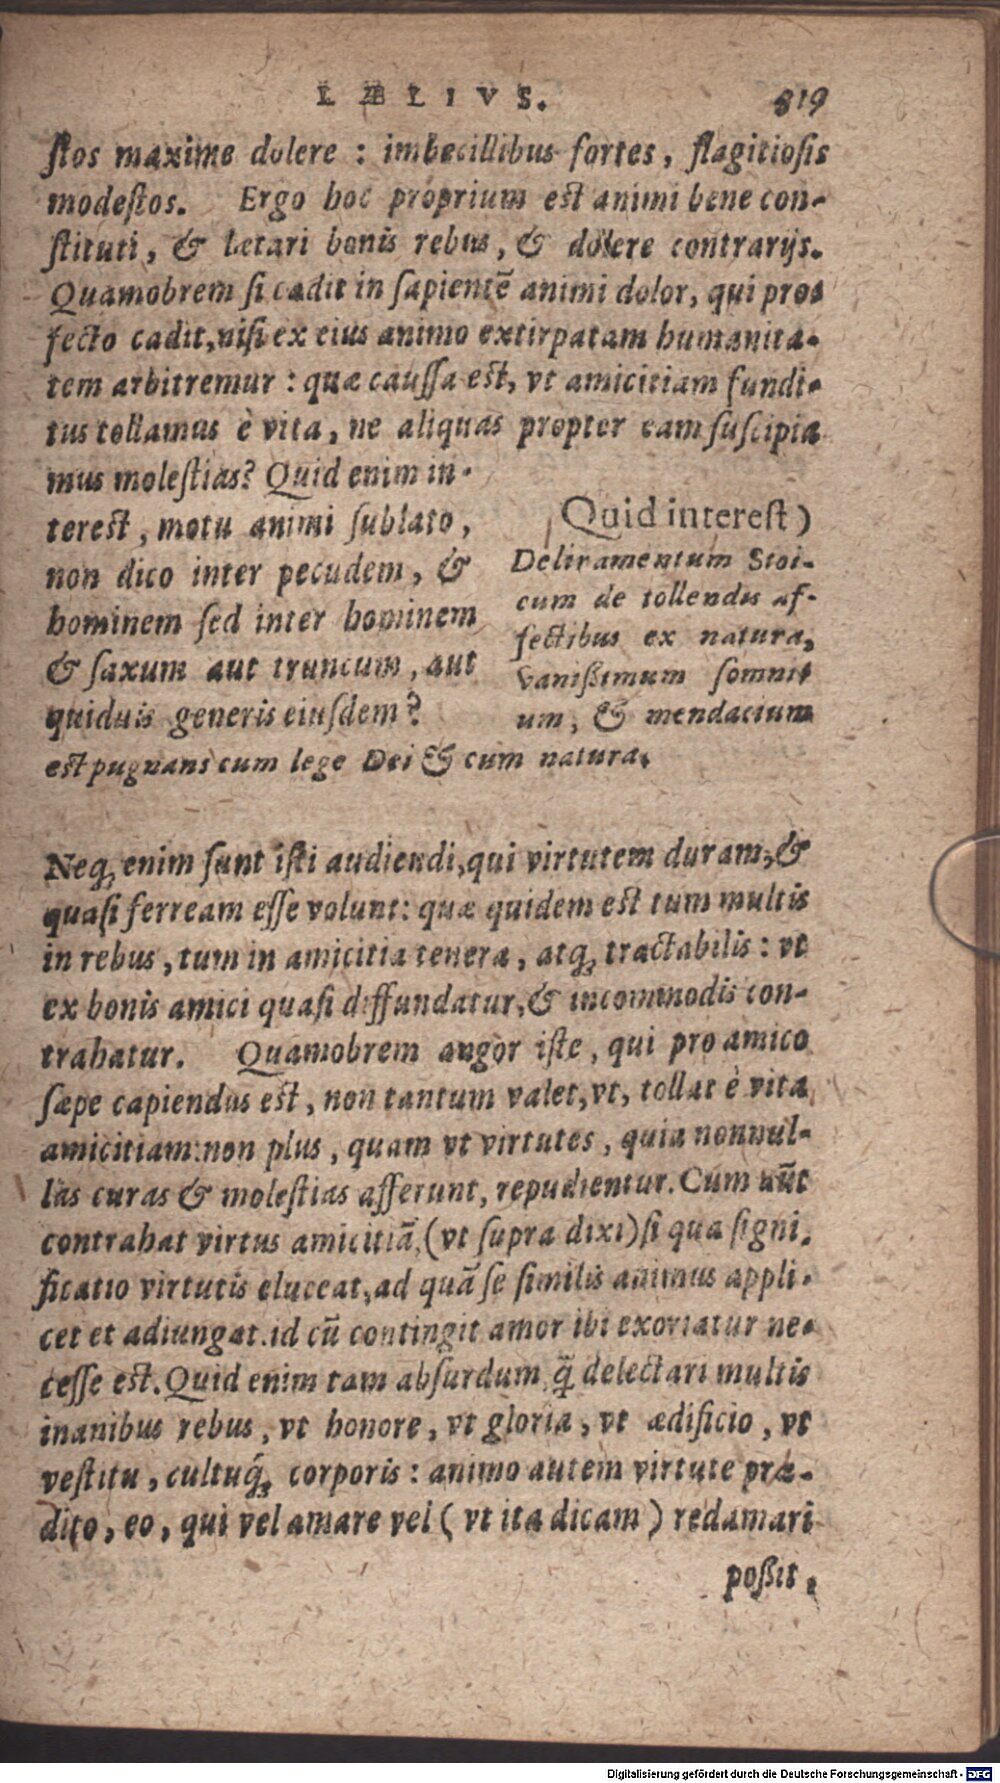 LÆLIVS. 819
ſtos maxime dolere : imbecillibus fortes, flagitioſis
modeſtos. Ergo hoc proprium eſt animi bene con-
ſtituti, & lætari bonis rebus, & dolere contrarijs.
Quamobrem ſi cadit in ſapientẽ animi dolor, qui pro-
fecto cadit, niſi ex eius animo extirpatam humanita-
tem arbitremur : quæ cauſſa eſt, vt amicitiam fundi-
tus tollamus è vita, ne aliquas propter eam ſuſcipia
mus moleſtias? Quid enim in-
tereſt, motu animi ſublato,
non dico inter pecudem, &
hominem ſed inter hominem
& ſaxum aut truncum, aut
quiduis generis eiuſdem?
Quid intereſt)
Deliramentum Stoi-
cum de tollendis af-
fectibus ex natura,
vanißimum ſomni
um, & mendacium
eſt pugnans cum lege Dei & cum natura.
Neq; enim ſunt iſti audiendi, qui virtutem duram, &
quaſi ferream eſſe volunt: quæ quidem eſt tum multis
in rebus, tum in amicitia tenera, atq; tractabilis : vt
ex bonis amici quaſi diffundatur, & incommodis con-
trahatur. Quamobrem angor iſte, qui pro amico
ſæpe capiendus eſt, non tantum valet, vt, tollat è vita
amicitiam: non plus, quam vt virtutes, quia nonnul-
las curas & moleſtias afferunt, repudientur. Cum aũt
contrahat virtus amicitiã, (vt ſupra dixi) ſi qua ſigni-
ficatio virtutis eluceat, ad quã ſe ſimilis animus appli-
cet et adiungat. id cũ contingit amor ibi exoriatur ne-
ceſſe eſt. Quid enim tam abſurdum, q̃ delectari multis
inanibus rebus, vt honore, vt gloria, vt ædificio, vt
veſtitu, cultuq́; corporis : animo autem virtute præ-
dito, eo, qui vel amare vel ( vt ita dicam ) redamari
poßit,
Digitalisierung gefördert durch die Deutsche Forschungsgemeinschaft - DFG